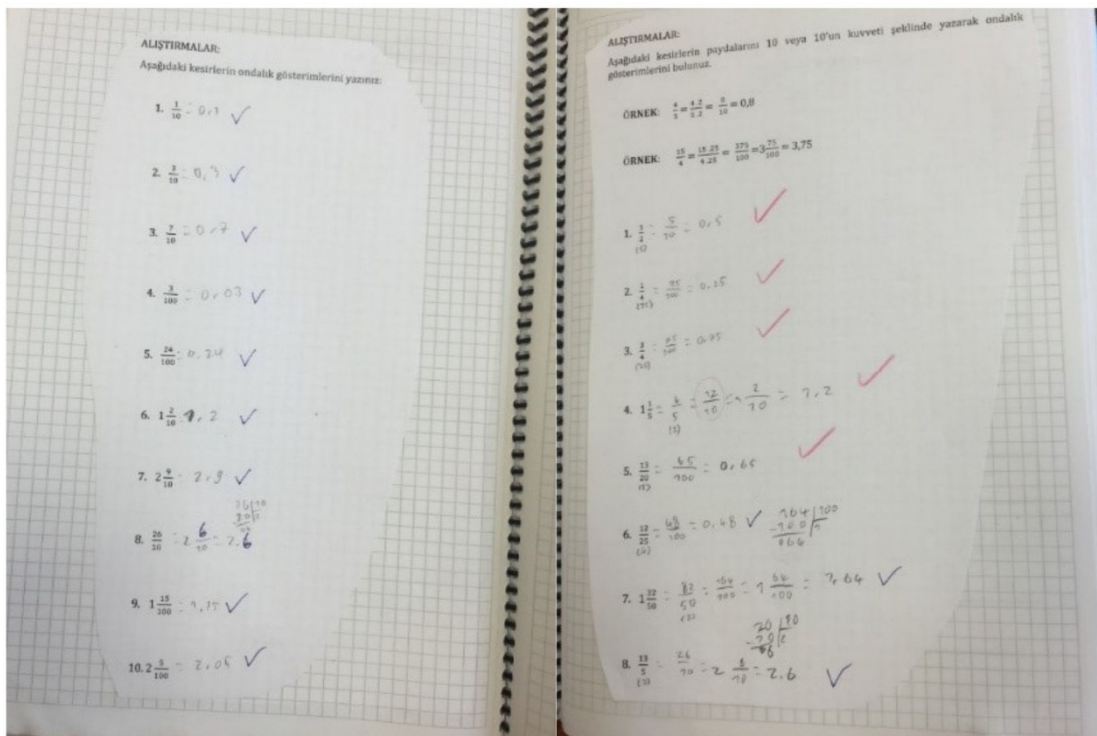 ALIŞTIRMALAR:
Aşağıdaki kesirlerin ondalık gösterimlerini yazınız:
1. 1/10 = 0,1 ✓
2. 3/10 = 0,3 ✓
3. 7/10 = 0,7 ✓
4. 3/100 = 0,03 ✓
5. 24/100 = 0,24 ✓
6. 1 2/10 = 1,2 ✓
7. 2 9/10 = 2,9 ✓
8. 26/10 = 2 6/10 = 2,6
9. 1 15/100 = 1,15 ✓
10. 2 5/100 = 2,05 ✓
ALIŞTIRMALAR:
Aşağıdaki kesirlerin paydalarını 10 veya 10'un kuvveti şeklinde yazarak ondalık
gösterimlerini bulunuz.
ÖRNEK: 4/5 = 4.2/5.2 = 8/10 = 0,8
ÖRNEK: 15/4 = 15.25/4.25 = 375/100 = 3 75/100 = 3,75
1. 1/2 = 5/10 = 0,5 ✓
2. 1/4 = 25/100 = 0,25 ✓
3. 3/4 = 75/100 = 0,75 ✓
4. 1 1/5 = 6/5 = 12/10 = 1 2/10 = 1,2 ✓
5. 13/20 = 65/100 = 0,65 ✓
6. 12/25 = 48/100 = 0,48 ✓ 164 100
-100 1
064
7. 1 32/50 = 82/50 = 164/100 = 1 64/100 = 1,64 ✓
8. 13/5 = 26/10 = 2 6/10 = 2,6 ✓